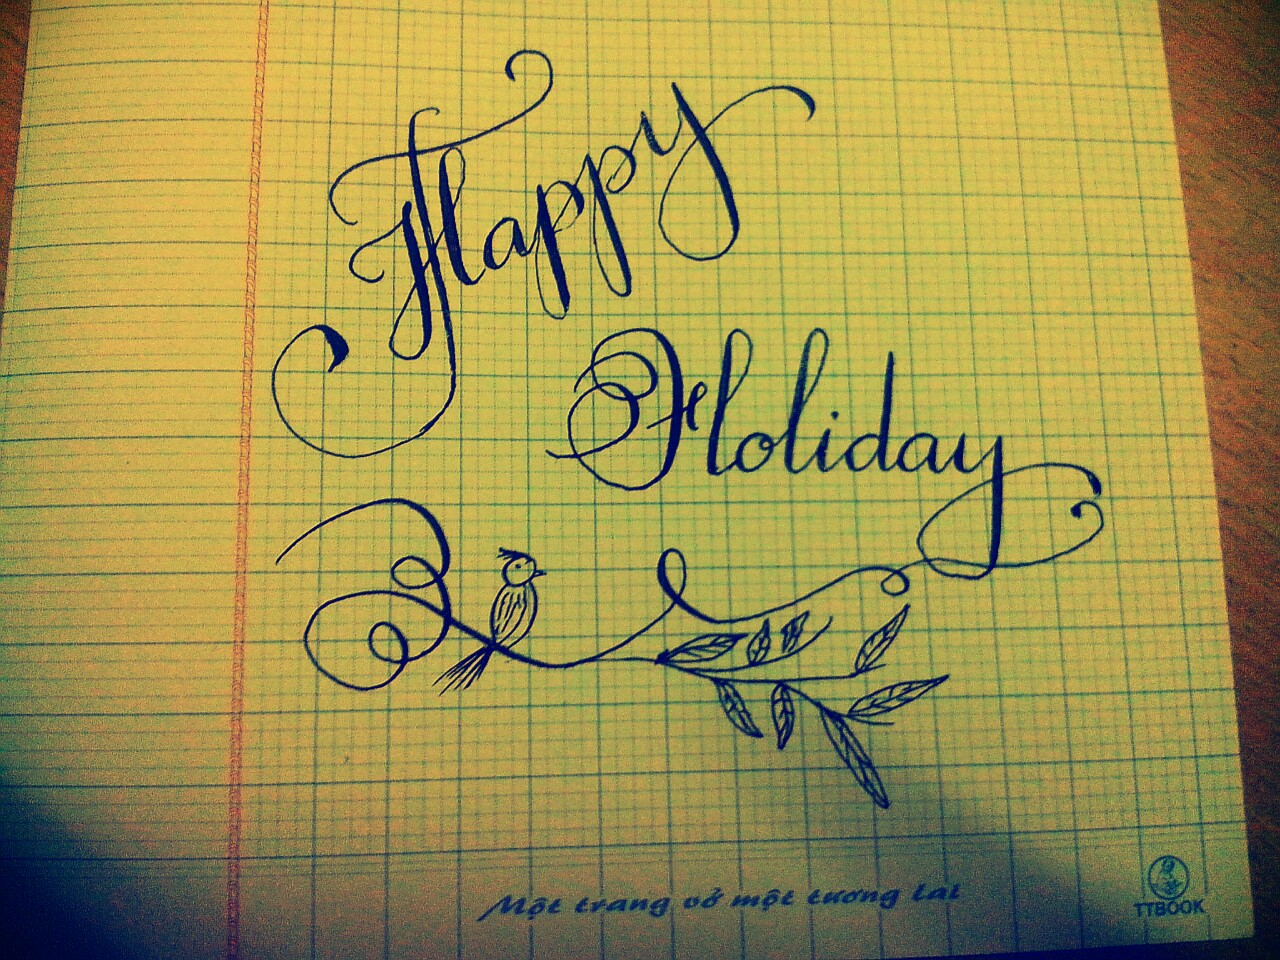 Happy
Holiday
Một trang vở một tương lai
TTBOOK